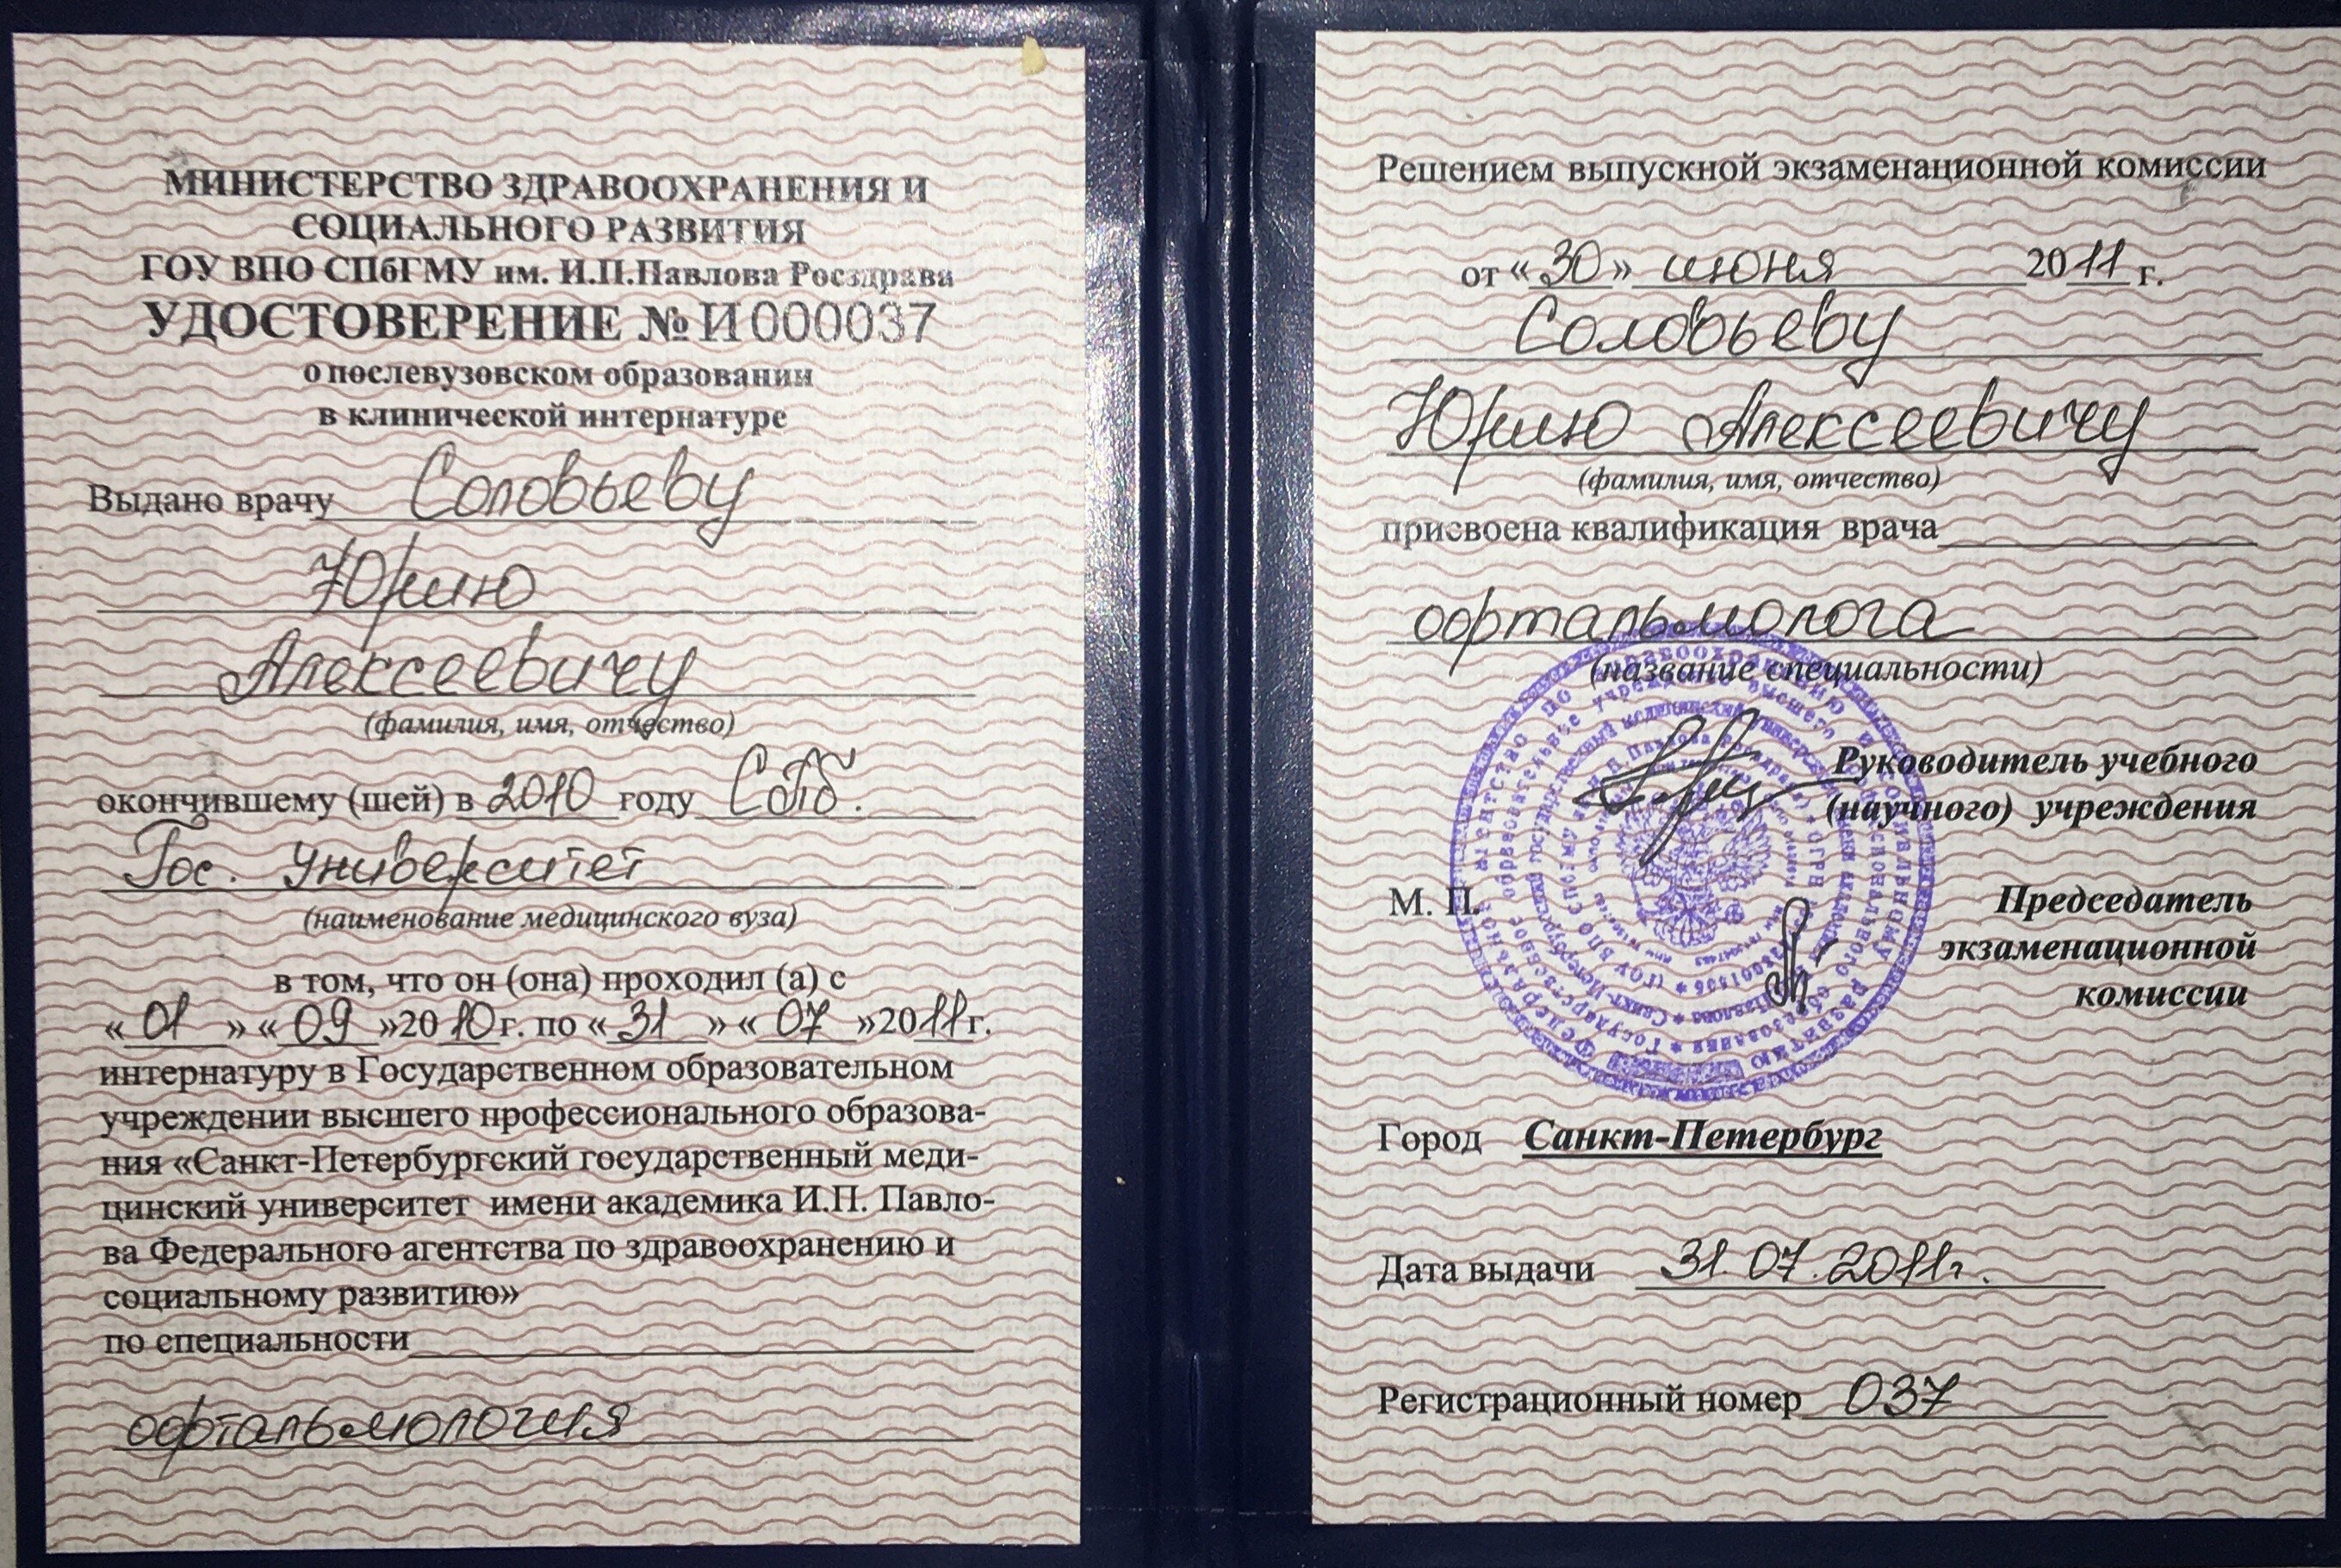 МИНИСТЕРСТВО ЗДРАВООХРАНЕНИЯ И
СОЦИАЛЬНОГО РАЗВИТИЯ
ГОУ ВПО СПбГМУ им. И.П.Павлова Росздрава
УДОСТОВЕРЕНИЕ № И 000037
о послевузовском образовании
в клинической интернатуре
Выдано врачу Соловьеву
Юрию
Алексеевичу
(фамилия, имя, отчество)
окончившему (шей) в 2010 году СПб.
Гос. Университет
(наименование медицинского вуза)
в том, что он (она) проходил (а) с
«01» «09» 2010 г. по «31» «07» 2011 г.
интернатуру в Государственном образовательном
учреждении высшего профессионального образова-
ния «Санкт-Петербургский государственный меди-
цинский университет имени академика И.П. Павло-
ва Федерального агентства по здравоохранению и
социальному развитию»
по специальности
офтальмология
Решением выпускной экзаменационной комиссии
от «30» июня 2011 г.
Соловьеву
Юрию Алексеевичу
(фамилия, имя, отчество)
присвоена квалификация врача
офтальмолога
(название специальности)
Руководитель учебного
(научного) учреждения
М. П.
Председатель
экзаменационной
комиссии
Город Санкт-Петербург
Дата выдачи 31.07.2011г.
Регистрационный номер 037